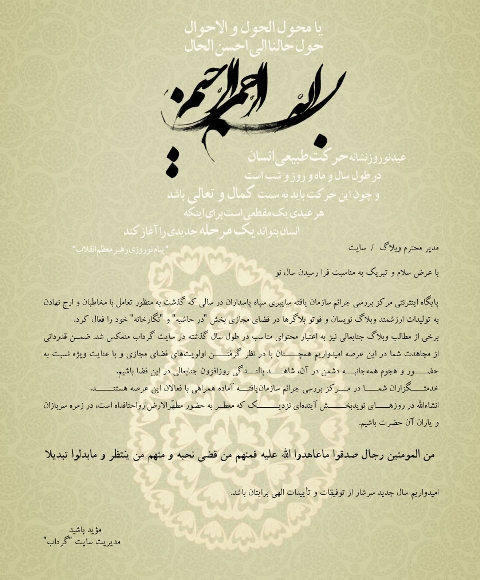 یا محول الحول و الاحوال
حول حالنا الی احسن الحال
بسم الله الرحمن الرحیم
عید نوروز نشانه حرکت طبیعی انسان
در طول سال و ماه و روز و شب است
و چون این حرکت باید به سمت کمال و تعالی باشد
هر عیدی یک مقطعی است برای اینکه
انسان بتواند یک مرحله جدیدی را آغاز کند
"پیام نوروزی رهبر معظم انقلاب"
مدیر محترم وبلاگ / سایت
با عرض سلام و تبریک به مناسبت فرا رسیدن سال نو
پایگاه اینترنتی مرکز بررسی جرائم سازمان یافته سایبری سپاه پاسداران در سالی که گذشت به منظور تعامل با مخاطبان و ارج نهادن
به تولیدات ارزشمند وبلاگ نویسان و فوتو بلاگرها در فضای مجازی بخش "در حاشیه" و "نگارخانه" خود را فعال کرد.
برخی از مطالب وبلاگ جنابعالی نیز به اعتبار محتوای مناسب در طول سال گذشته در سایت گرداب منعکس شد. ضمن قدردانی
از مجاهدت شما در این عرصه امیدواریم همچنان با در نظر گرفتن اولویت‌های فضای مجازی و با عنایت ویژه نسبت به
حضور و هجوم همه‌جانبه دشمن در آن، شاهد بالندگی روزافزون جنابعالی در این فضا باشیم.
خدمتگزاران شما در مرکز بررسی جرائم سازمان‌یافته آماده همراهی با فعالان این عرصه هستند.
انشاءالله در روزهای نویدبخش آینده‌ای نزدیک که معطر به حضور مطهرالارض ارواحنافداه است، در زمره سربازان
و یاران آن حضرت باشیم.
من المومنین رجال صدقوا ماعاهدوا الله علیه فمنهم من قضی نحبه و منهم من ینتظر و مابدلوا تبدیلا
امیدواریم سال جدید سرشار از توفیقات و تأییدات الهی برایتان باشد.
مؤید باشید
مدیریت سایت "گرداب"